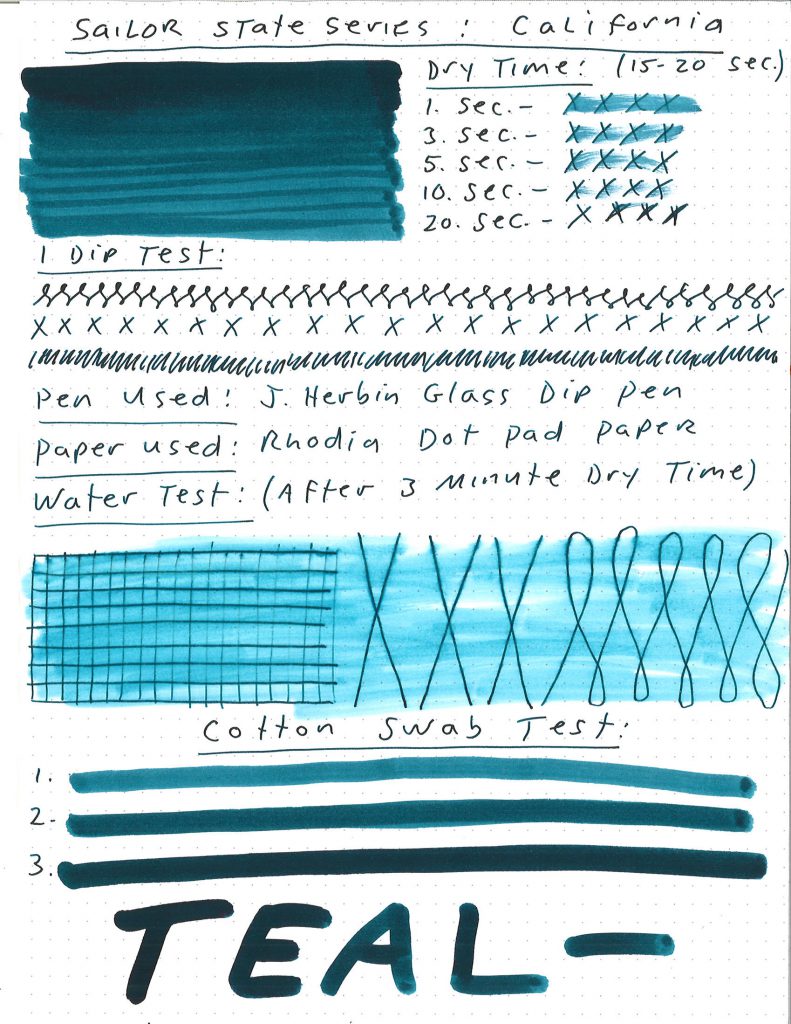 Sailor State Series: California
Dry Time: (15-20 sec.)
1. sec. - X X X X
3. sec. - X X X X
5. sec. - X X X X
10. sec. - X X X X
20. sec. - X X X X
1 Dip Test:
X X X X X X X X X X X X X X X X X X X X
Pen Used: J. Herbin Glass Dip Pen
Paper used: Rhodia Dot Pad paper
Water Test: (After 3 Minute Dry Time)
Cotton Swab Test:
1.
2.
3.
TEAL-